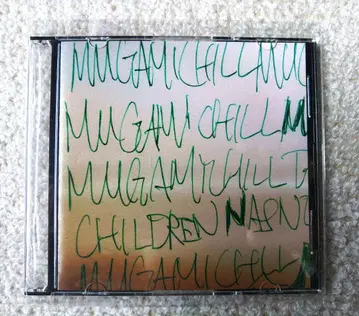 MUGAMICHILLMUG
MUGAMICHILLM
MUGAMICHILLD
CHILDREN
MUGAMICHILL